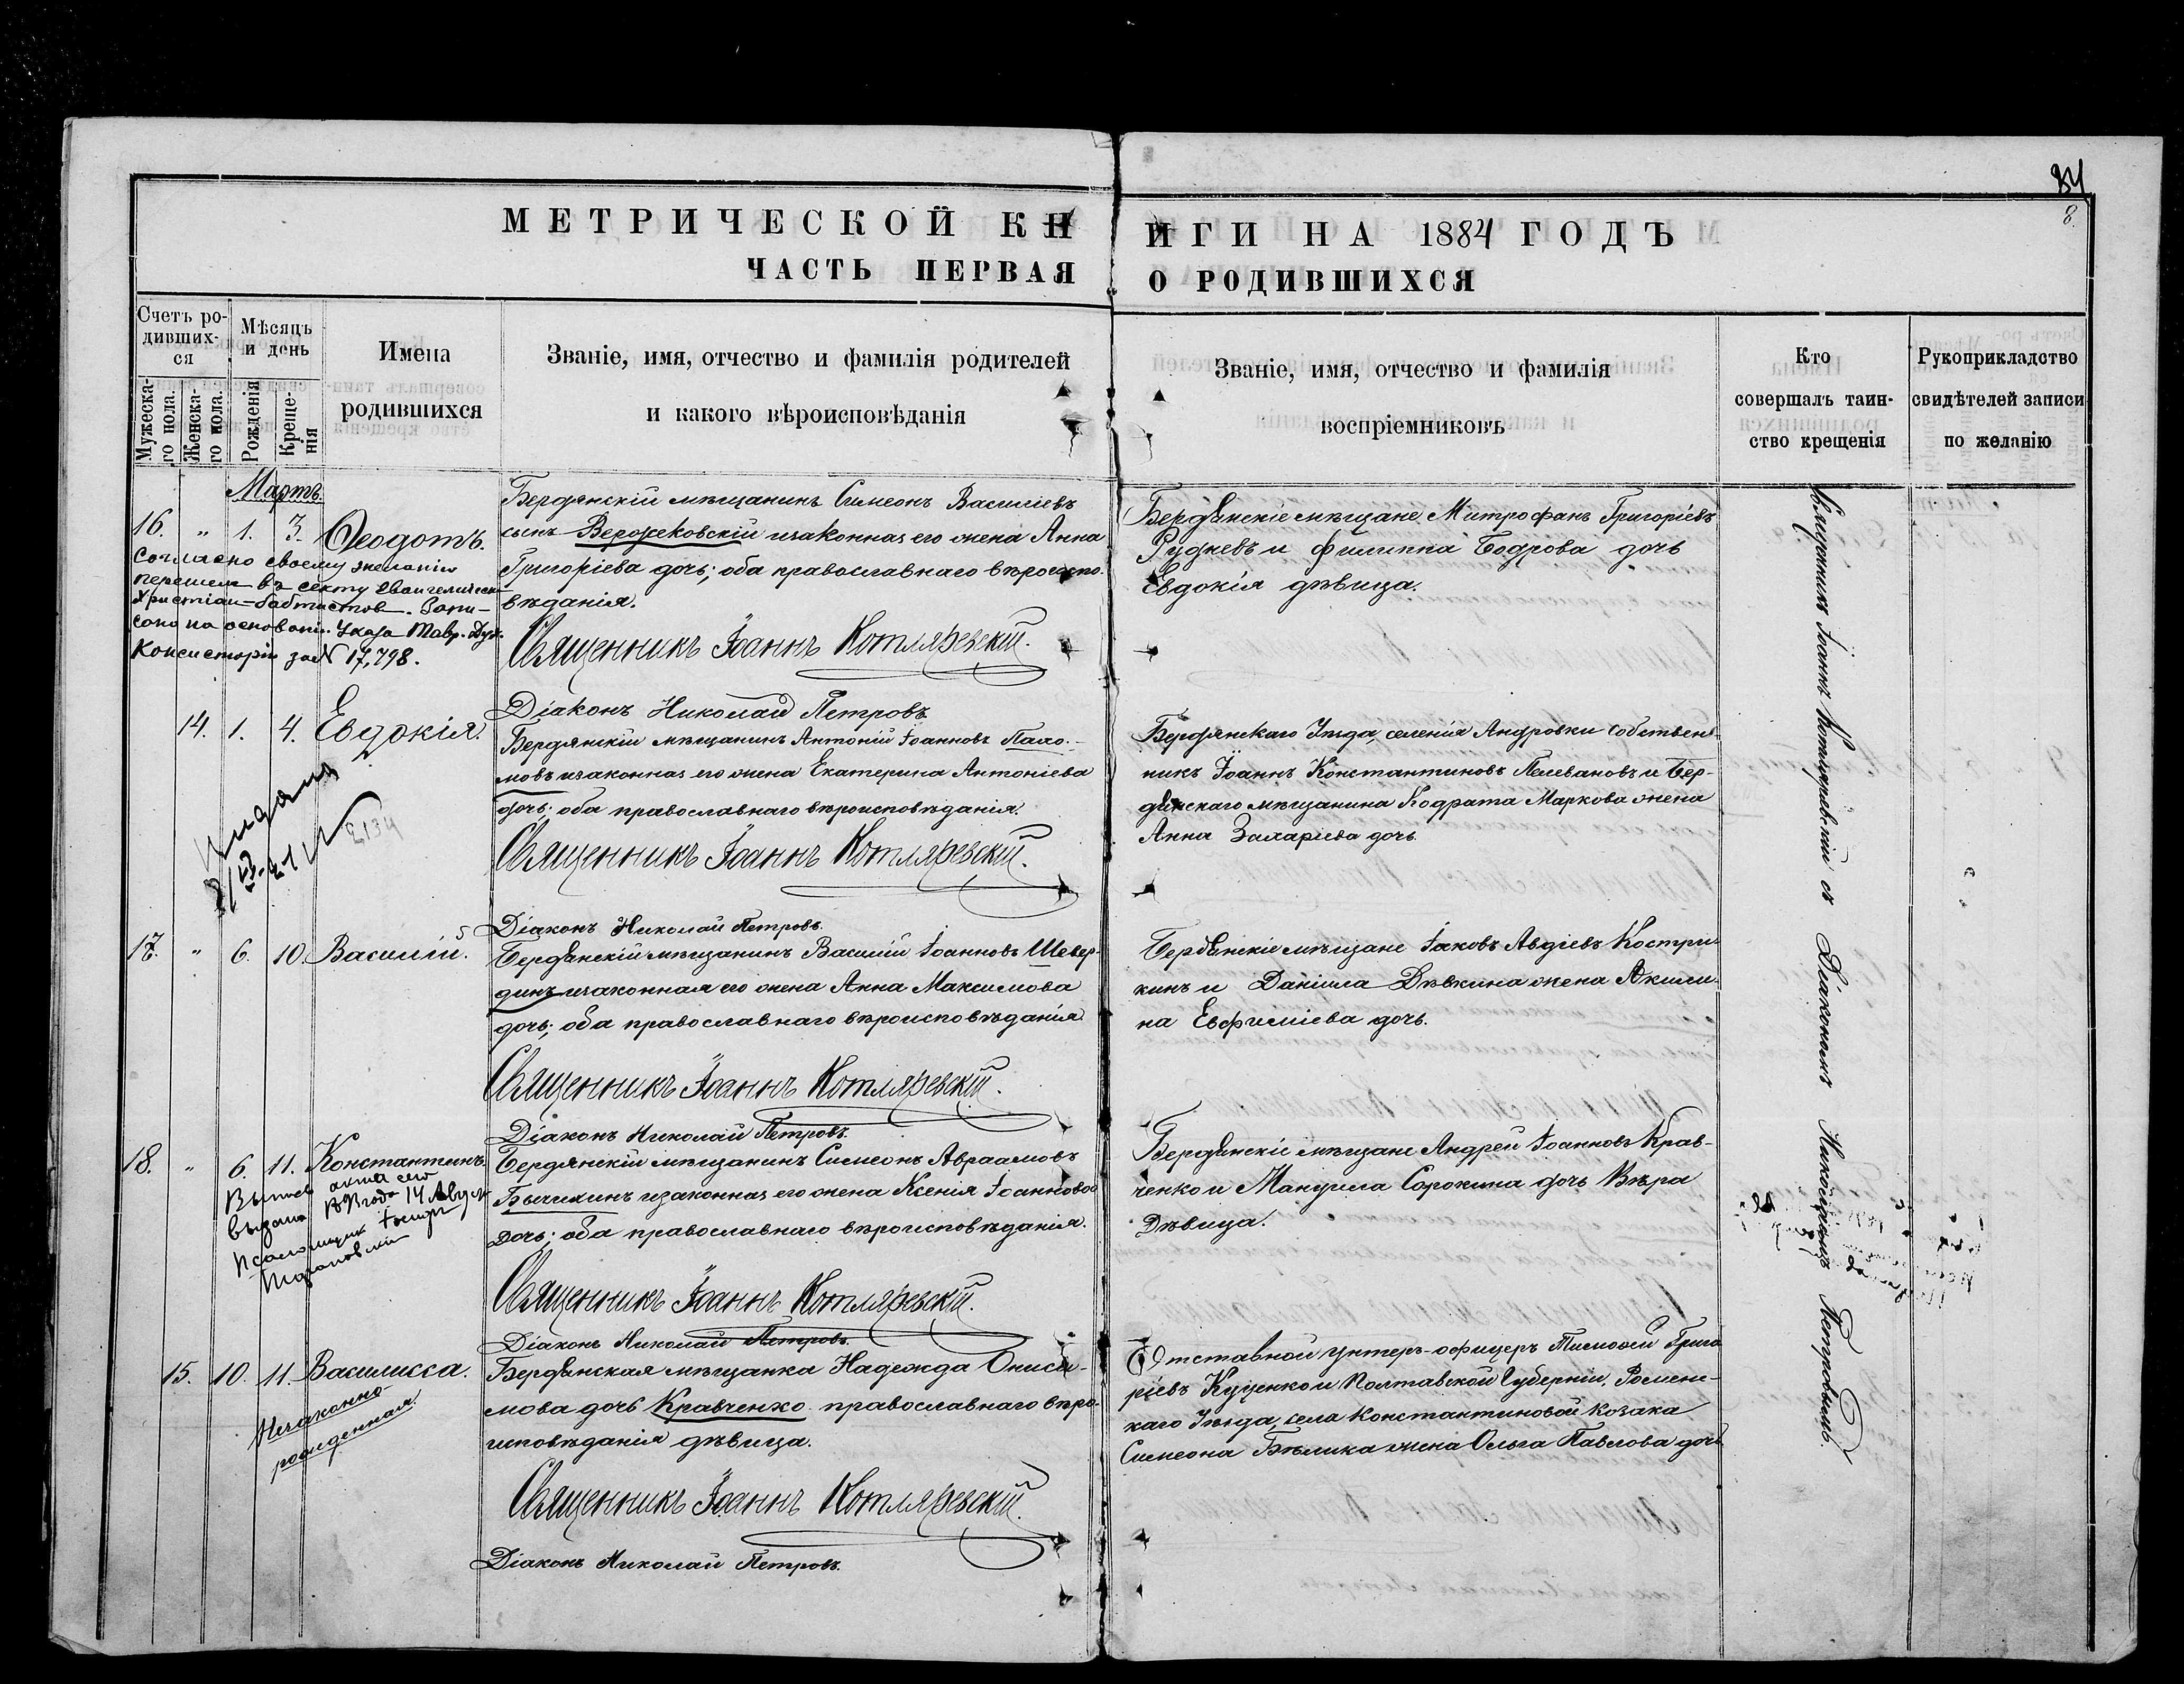 84
8
МЕТРИЧЕСКОЙ КНИГИ НА 1884 ГОДЪ
ЧАСТЬ ПЕРВАЯ О РОДИВШИХСЯ
Счетъ ро-
дивших-
ся
Мужеска-
го пола.
Женска-
го пола.
Мѣсяцъ
и день
Рожденія
Креще-
нія
Имена
родившихся
Званіе, имя, отчество и фамилія родителей
и какого вѣроисповѣданія
Званіе, имя, отчество и фамилія
воспріемниковъ
Кто
совершалъ таин-
ство крещенія
Рукоприкладство
свидѣтелей записи
по желанію
Мартъ.
16. " 1. 3. Ѳеодотъ.
Согласно своему желанію
перешел въ секту Евангелическ
Христіан-баптистов. Запи-
сано на основаніи Указа Тавр. Дух.
Консисторіи за № 17,798.
Бердянскій мѣщанинъ Симеонъ Василіевъ
сынъ Верожековскій и законная его жена Анна
Григоріева дочь; оба православнаго вѣроиспо-
вѣданія.
Священникъ Іоаннъ Котляревскій.
Діаконъ Николай Петровъ
Бердянскіе мѣщане Митрофанъ Григоріевъ
Рудневъ и Филиппа Бодрова дочь
Евдокія дѣвица.
14. 1. 4. Евдокія.
2134
Бердянскій мѣщанинъ Антоній Іоанновъ Пахо-
мовъ и законная его жена Екатерина Антоніева
дочь; оба православнаго вѣроисповѣданія.
Священникъ Іоаннъ Котляревскій.
Діаконъ Николай Петровъ.
Бердянскаго Уѣзда, селенія Андровки собствен-
никъ Іоаннъ Константиновъ Пелевановъ и Бер-
дянскаго мѣщанина Кодрата Маркова жена
Анна Захаріева дочь.
17. " 6. 10. Василій.
Бердянскій мѣщанинъ Василій Іоанновъ Шевер-
динъ и законная его жена Анна Максимова
дочь; оба православнаго вѣроисповѣданія
Священникъ Іоаннъ Котляревскій.
Діаконъ Николай Петровъ.
Бердянскіе мѣщане Іаковъ Авдіевъ Костри-
кинъ и Даніила Дѣвкина жена Акили-
на Евфиміева дочь.
18. " 6. 11. Константинъ.
акта сего
выдана года 14 Август
Псаломщик
Бердянскій мѣщанинъ Симеонъ Авраамовъ
Бычихинъ и законная его жена Ксенія Іоаннова
дочь; оба православнаго вѣроисповѣданія.
Священникъ Іоаннъ Котляревскій.
Діаконъ Николай Петровъ.
Бердянскіе мѣщане Андрей Іоанновъ Крав-
ченко и Мануила Сорокина дочь Вѣра
Дѣвица.
15. 10. 11. Василисса.
Незаконно-
рожденная.
Бердянская мѣщанка Надежда Ониси-
мова дочь Кравченко православнаго вѣро-
исповѣданія дѣвица.
Священникъ Іоаннъ Котляревскій.
Діаконъ Николай Петровъ.
Отставной унтеръ-офицеръ Тимоѳей Григо
ріевъ Куценко и Полтавской Губерніи, Ромен-
скаго Уѣзда, села Константиновой козака
Симеона Бѣлика жена Ольга Павлова дочь
Священникъ Іоаннъ Котляревскій съ Діакономъ Николаемъ Петровымъ.